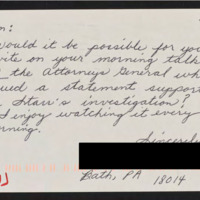 m:
would it be possible for you
ite on your morning talk
the Attorneys General wh
ued a statement support
Starr's investigation?
I enjoy watching it every
rning.
Sincerel
Bath, PA 18014